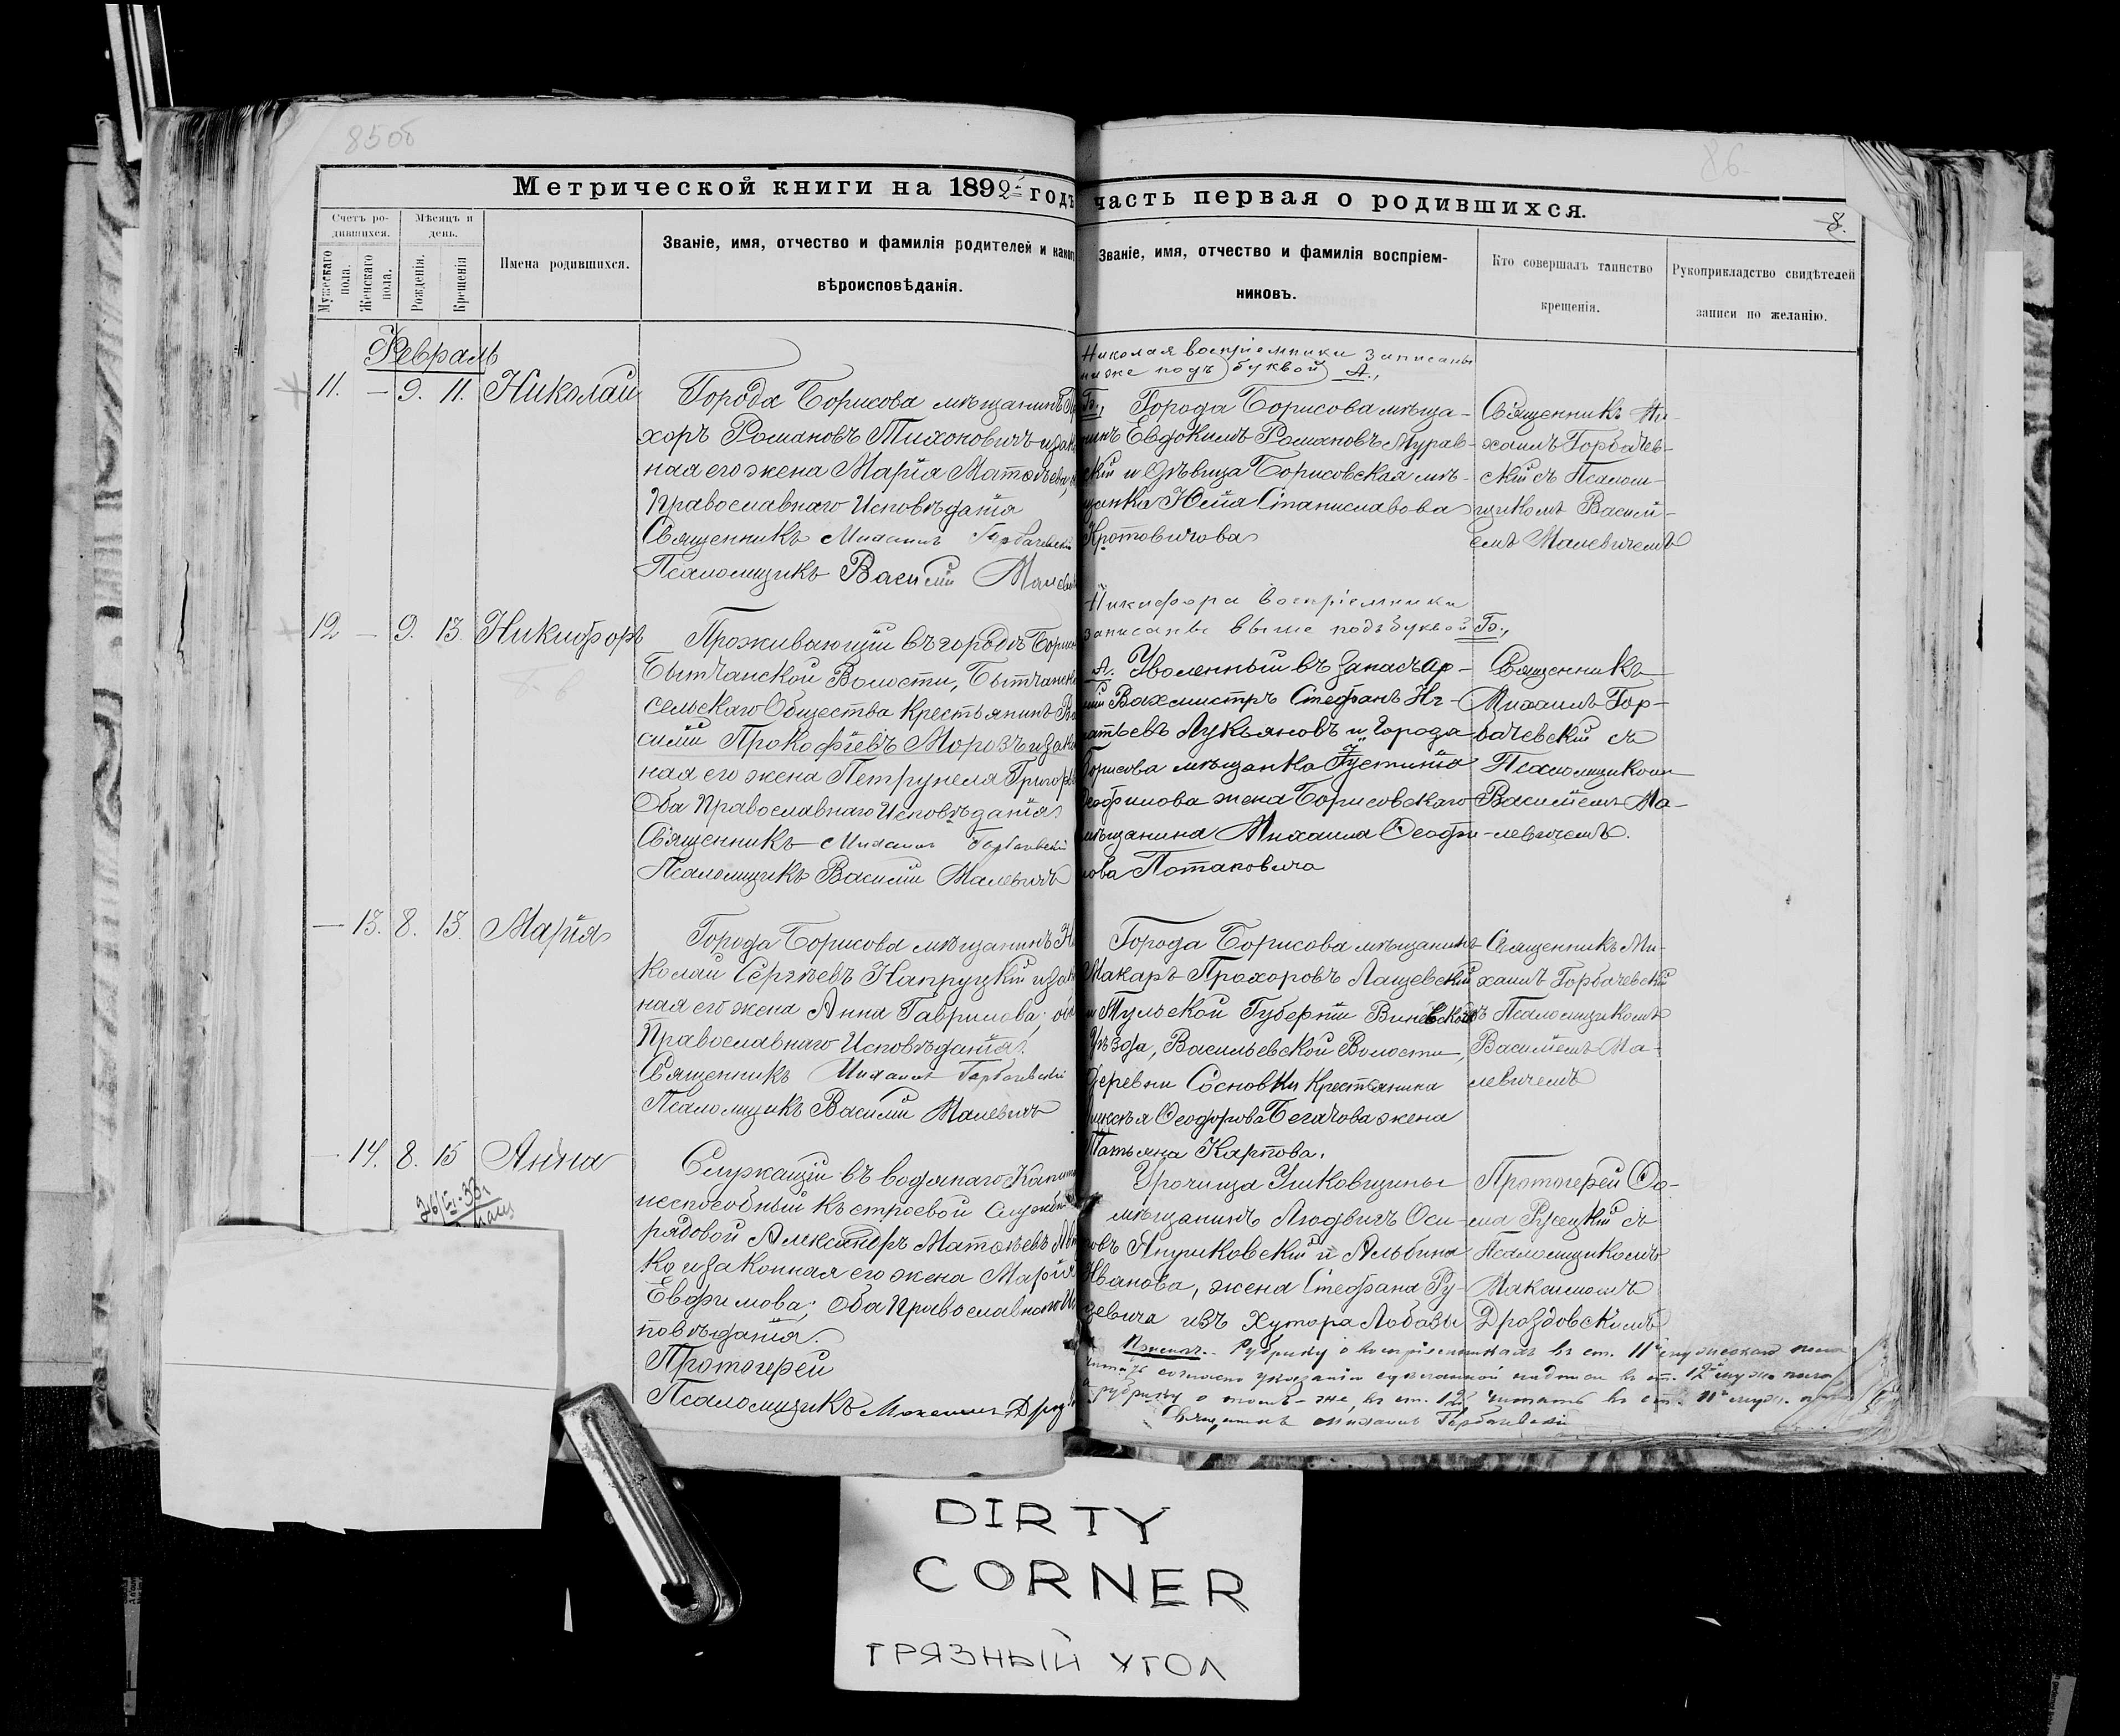 85об
86
Метрической книги на 1892й годъ
часть первая о родившихся.
8.
Счетъ родившихся.
Мужескаго пола.
Женскаго пола.
Мѣсяцъ и день.
Рожденія.
Крещенія
Имена родившихся.
Званіе, имя, отчество и фамилія родителей и
вѣроисповѣданія.
Званіе, имя, отчество и фамилія воспріем-
никовъ.
Кто совершалъ таинство
крещенія.
Рукоприкладство свидѣтелей
записи по желанію.
Февраль
11. — 9. 11. Николай
Города Борисова мѣщанинъ
хоръ Романовъ Тихоновичъ и
ная его жена Марія Матѳѣева,
Православнаго Исповѣданія
Священникъ Михаилъ Горбачевскій
Псаломщикъ Василій
Николая воспріемники записаны
ниже подъ буквой А.,
Б., Города Борисова мѣща-
нинъ Евдокимъ Романовъ Мурав-
скій и дѣвица Борисовская мѣ-
щанка Юлія Станиславова
Кротовичова
Священникъ Ми-
хаилъ Горбачев-
скій съ Псалом-
щикомъ Василі-
емъ Малевичемъ
12 — 9. 13. Никифоръ
Проживающій въ городѣ
Бытчанской Волости,
сельскаго Общества крестьянинъ
силій Прокофіевъ Морозъ и
ная его жена Петрунеля
Оба Православнаго Исповѣданія
Священникъ Михаилъ Горбачевскій
Псаломщикъ Василій Малевичъ
Никифора воспріемники
записаны выше подъ буквой Б.,
А. Уволенный въ запасъ ар-
міи Вахмистръ Стефанъ Иг-
натьевъ Лукьяновъ и Города
Борисова мѣщанка Іустинія
Ѳеофилова жена Борисовскаго
мѣщанина Михаила Ѳеофи-
лова Потаповича
Священникъ
Михаилъ Гор-
бачевскій съ
Псаломщикомъ
Василіемъ Ма-
левичемъ.
— 13. 8. 13. Марія
Города Борисова мѣщанинъ
колай Сергѣевъ Напруцкій и
ная его жена Анна Гаврилова;
Православнаго Исповѣданія.
Священникъ Михаилъ Горбачевскій
Псаломщикъ Василій Малевичъ
Города Борисова мѣщанинъ
Макаръ Прохоровъ Лащевскій
и Тульской Губерніи
Уѣзда, Васильевской Волости,
Деревни Сосновки крестьянина
Алексѣя Ѳеодорова Бегачова жена
Татьяна Карпова.
Священникъ Ми-
хаилъ Горбачевскій
съ Псаломщикомъ
Василіемъ Ма-
левичемъ
— 14. 8. 15 Анна
Служащій въ водянаго
неспособный къ строевой службѣ
рядовой Александръ Матѳѣевъ
ко и законная его жена Марія
Евфимова; Оба Православнаго Ис
повѣданія.
Протоіерей
Псаломщикъ
Урочища Ушковщины
мѣщанинъ Людвигъ Оси-
повъ Янушковскій и Альбина
Иванова, жена Стефана Ру-
цевича изъ Хутора Лобазы
Протоіерей Ѳо-
ма Русецкій съ
Псаломщикомъ
Максимомъ
Дроздовскимъ
Рубрику о воспріемникахъ въ ст. 11й мужескаго пола
читать согласно указанію сдѣланной надписи въ ст. 12й муж. пола
а рубрику о томъ-же, въ ст. 12й читать въ ст. 11й муж. пола
Священникъ Михаилъ Горбачевскій
DIRTY
CORNER
ГРЯЗНЫЙ УГОЛ